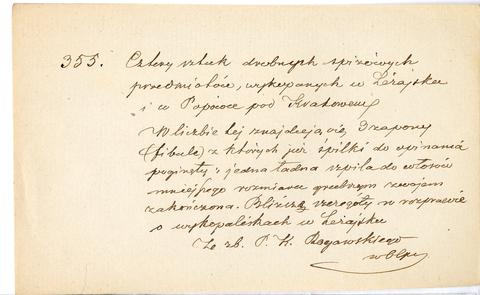 355. Cztery sztuk drobnych spiżowych
przedmiotów, wykopanych w Leżajsku
i w Popowce pod Krakowem
W liczbie tej znajdują się, 3 zapony
(fibule) z których już śpilki do spinania
poginęły i jedna ładna szpila do włosów
mniejszego rozmiaru grzebnym zwojem
zakończona. Bliższe szczegóły w rozprawie
o wykopaliskach w Leżajsku
Ze zb. P. K. Rogawskiego
w Ołpi